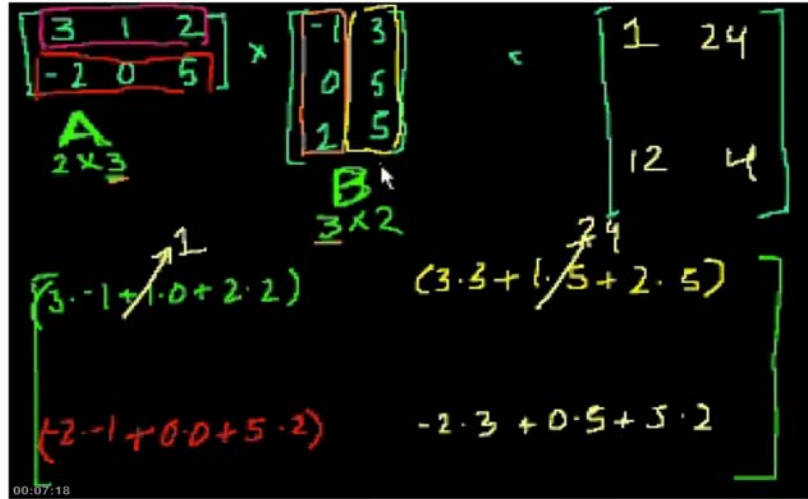 [3 1 2] × [-1 3] = [1 24]
[-2 0 5] [0 5]
[2 5] [12 4]
A
2 × 3
B
3 × 2
1
24
(3·-1 + 1·0 + 2·2) (3·3 + 1·5 + 2·5)
(-2·-1 + 0·0 + 5·2) -2·3 + 0·5 + 5·2
00:07:18